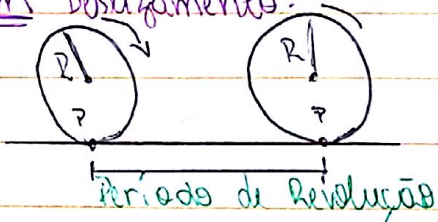 Deslizamento.
R R
P P
Período de Revolução